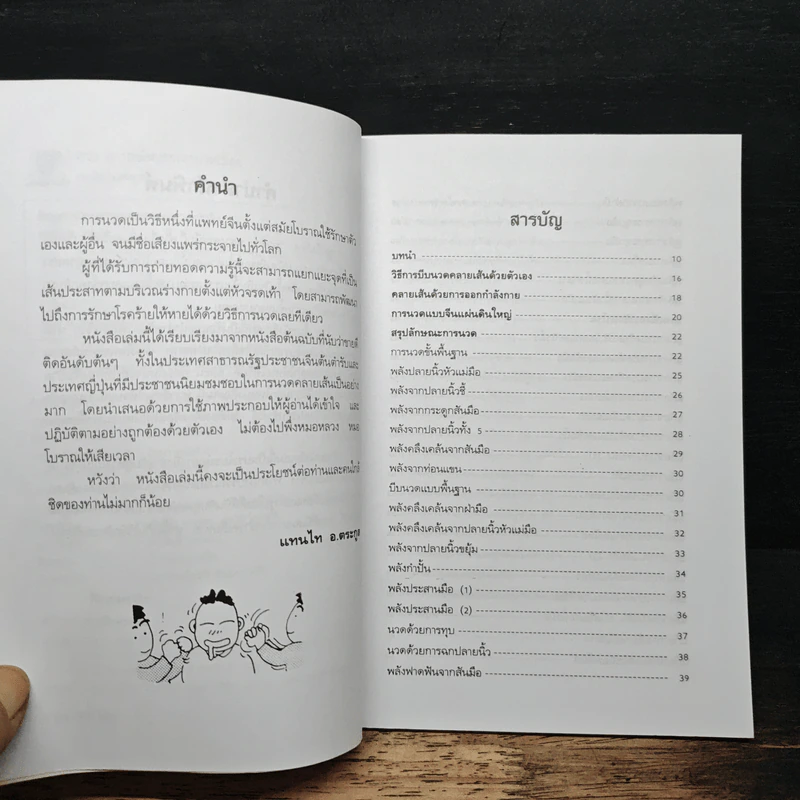 คำนำ
การนวดเป็นวิธีหนึ่งที่แพทย์จีนตั้งแต่สมัยโบราณใช้รักษาตัว
เองและผู้อื่น จนมีชื่อเสียงแพร่กระจายไปทั่วโลก
ผู้ที่ได้รับการถ่ายทอดความรู้นี้จะสามารถแยกแยะจุดที่เป็น
เส้นประสาทตามบริเวณร่างกายตั้งแต่หัวจรดเท้า โดยสามารถพัฒนา
ไปถึงการรักษาโรคร้ายให้หายได้ด้วยวิธีการนวดเลยทีเดียว
หนังสือเล่มนี้ได้เรียบเรียงมาจากหนังสือต้นฉบับที่นับว่าขายดี
ติดอันดับต้นๆ ทั้งในประเทศสาธารณรัฐประชาชนจีนต้นตำรับและ
ประเทศญี่ปุ่นที่มีประชาชนนิยมชมชอบในการนวดคลายเส้นเป็นอย่าง
มาก โดยนำเสนอด้วยการใช้ภาพประกอบให้ผู้อ่านได้เข้าใจ และ
ปฏิบัติตามอย่างถูกต้องด้วยตัวเอง ไม่ต้องไปพึ่งหมอหลวง หมอ
โบราณให้เสียเวลา
หวังว่า หนังสือเล่มนี้คงจะเป็นประโยชน์ต่อท่านและคนใกล้
ชิดของท่านไม่มากก็น้อย
แทนไท อ.ตระกูล
สารบัญ
บทนำ 10
วิธีการบีบนวดคลายเส้นด้วยตัวเอง 16
คลายเส้นด้วยการออกกำลังกาย 18
การนวดแบบจีนแผ่นดินใหญ่ 20
สรุปลักษณะการนวด 22
การนวดขั้นพื้นฐาน 22
พลังปลายนิ้วหัวแม่มือ 25
พลังจากปลายนิ้วชี้ 26
พลังจากกระดูกสันมือ 27
พลังจากปลายนิ้วทั้ง 5 28
พลังคลึงเคล้นจากสันมือ 29
พลังจากท่อนแขน 30
บีบนวดแบบพื้นฐาน 30
พลังคลึงเคล้นจากฝ่ามือ 31
พลังคลึงเคล้นจากปลายนิ้วหัวแม่มือ 32
พลังจากปลายนิ้วขยุ้ม 33
พลังกำปั้น 34
พลังประสานมือ (1) 35
พลังประสานมือ (2) 36
นวดด้วยการทุบ 37
นวดด้วยการฉกปลายนิ้ว 38
พลังฟาดฟันจากสันมือ 39